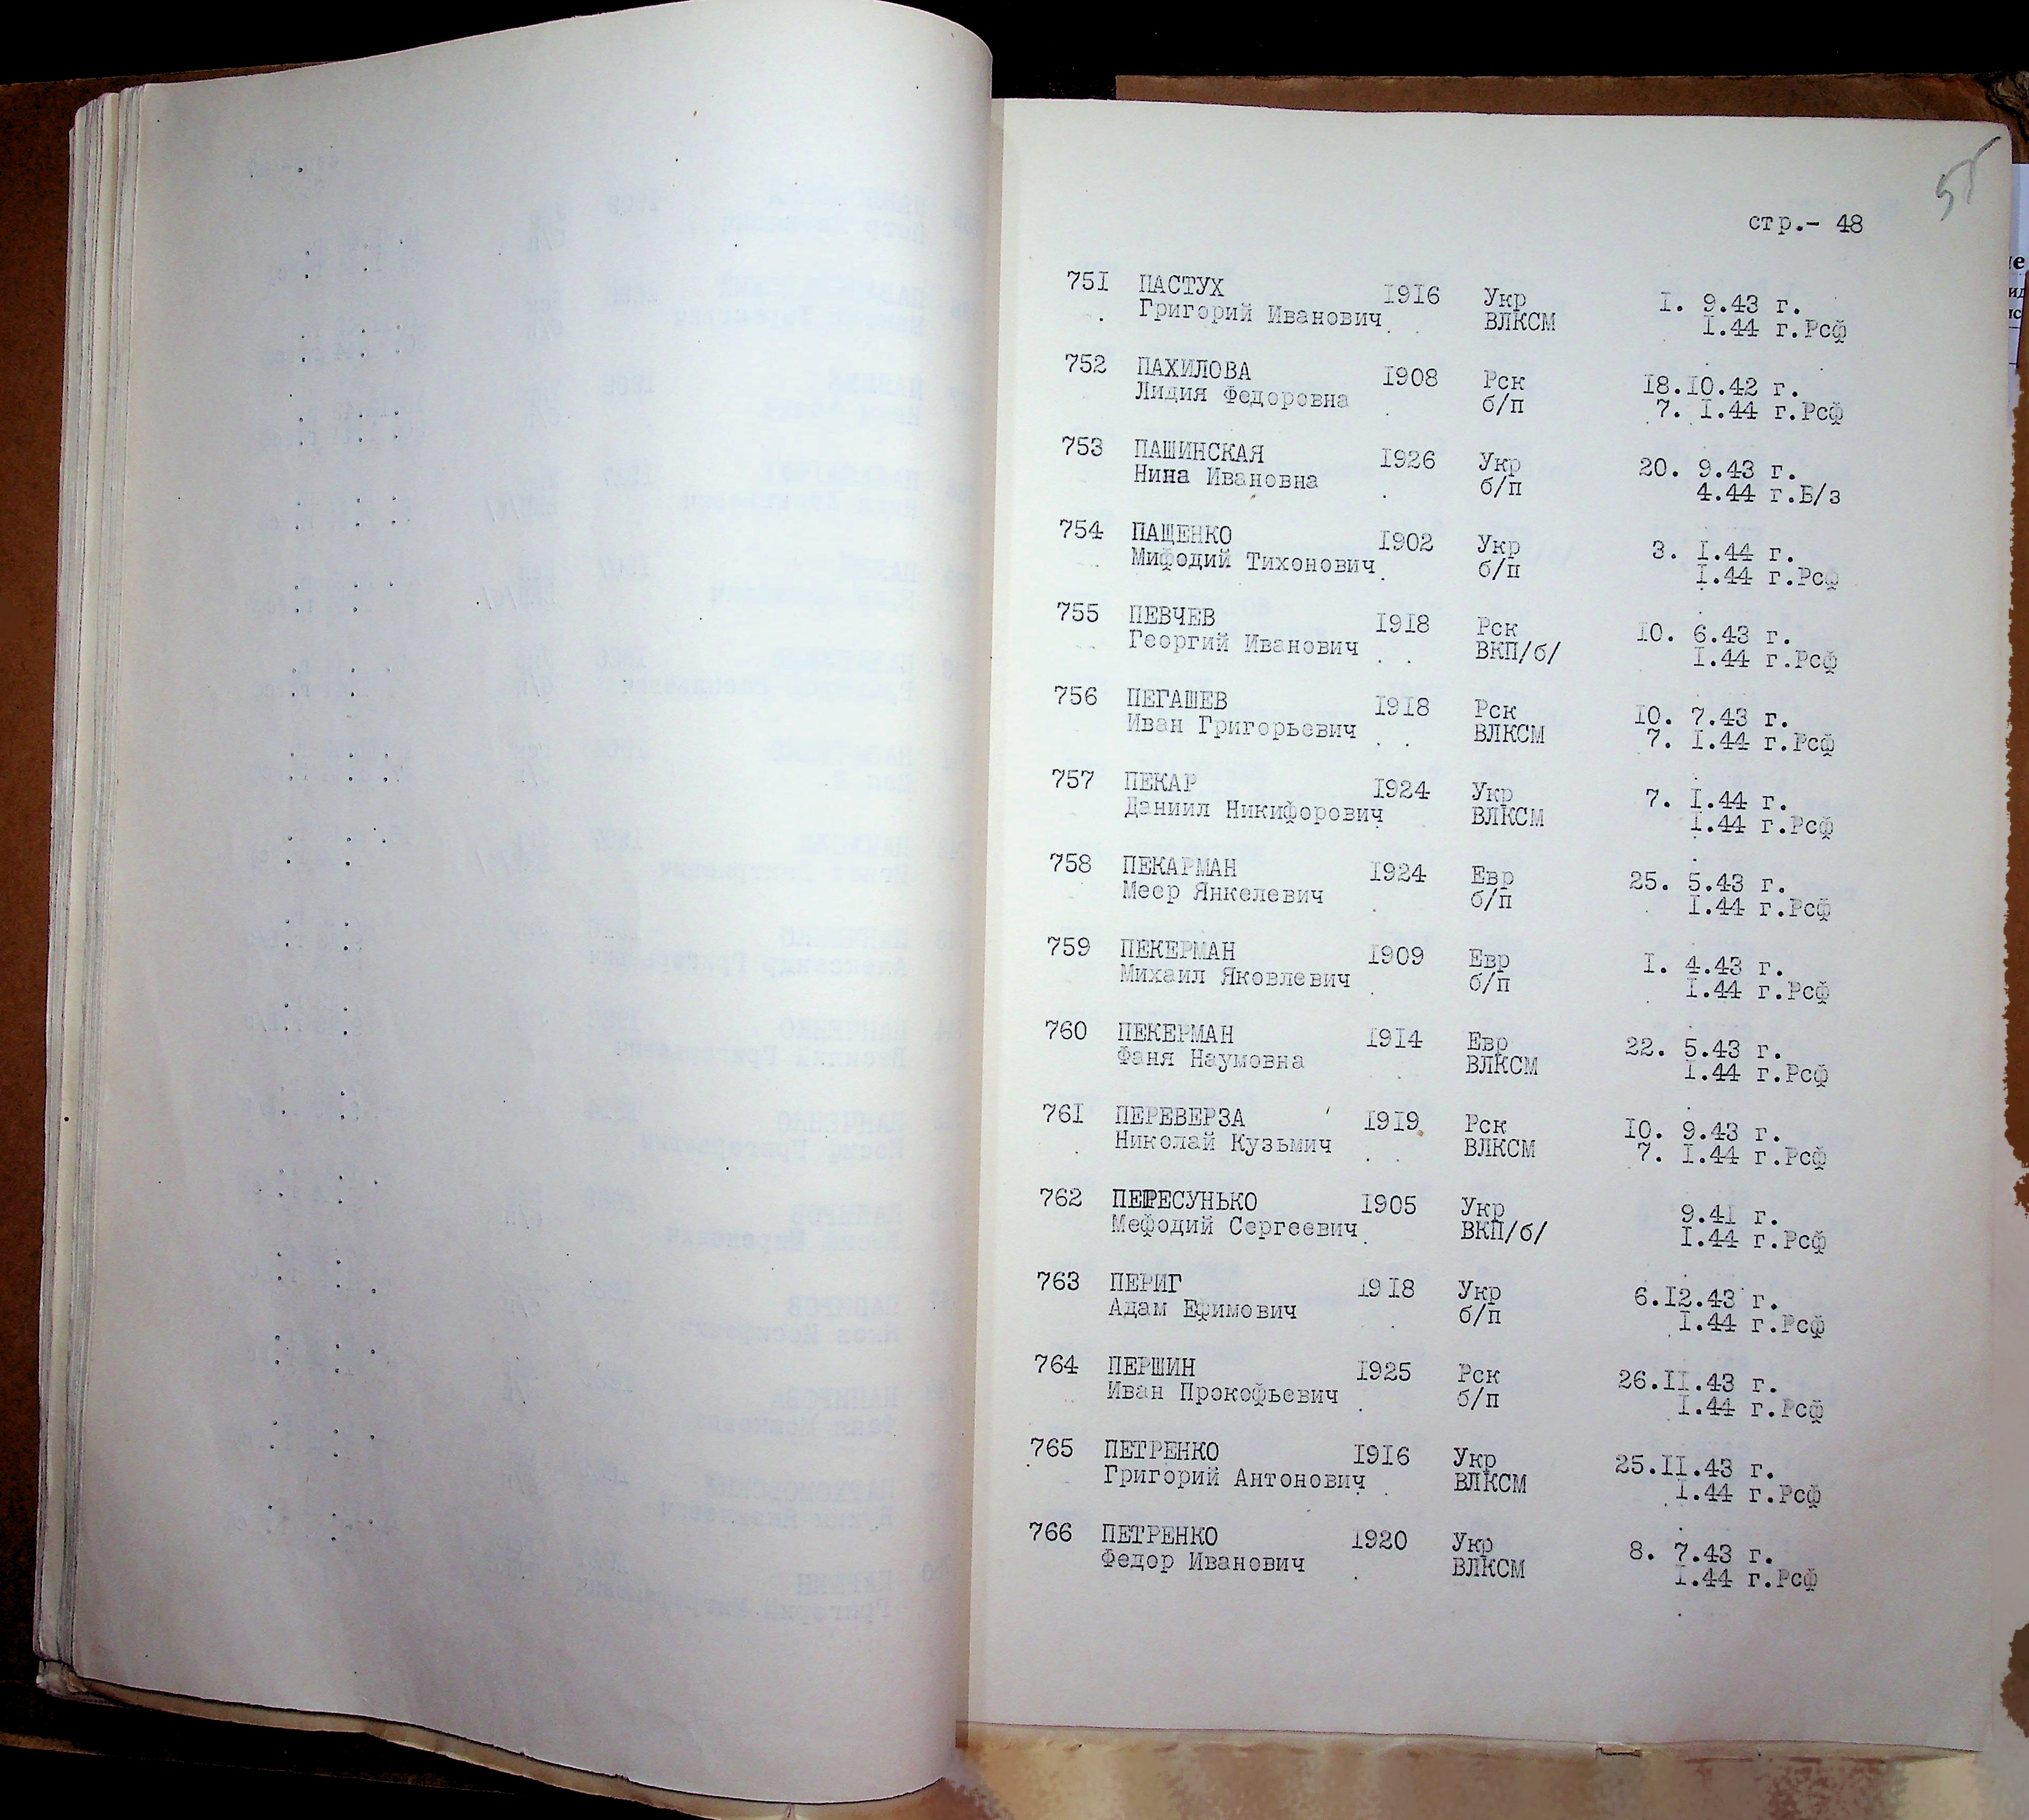 55
стр.- 48
751 ПАСТУХ 1916 Укр 1. 9.43 г.
Григорий Иванович ВЛКСМ 1.44 г.Рсф
752 ПАХИЛОВА 1908 Рск 18.10.42 г.
Лидия Федоровна б/п 7. 1.44 г.Рсф
753 ПАШИНСКАЯ 1926 Укр 20. 9.43 г.
Нина Ивановна б/п 4.44 г.Б/з
754 ПАЩЕНКО 1902 Укр 3. 1.44 г.
Мифодий Тихонович б/п 1.44 г.Рсф
755 ПЕВЧЕВ 1918 Рск 10. 6.43 г.
Георгий Иванович ВКП/б/ 1.44 г.Рсф
756 ПЕГАШЕВ 1918 Рск 10. 7.43 г.
Иван Григорьевич ВЛКСМ 7. 1.44 г.Рсф
757 ПЕКАР 1924 Укр 7. 1.44 г.
Даниил Никифорович ВЛКСМ 1.44 г.Рсф
758 ПЕКАРМАН 1924 Евр 25. 5.43 г.
Меер Янкелевич б/п 1.44 г.Рсф
759 ПЕКЕРМАН 1909 Евр 1. 4.43 г.
Михаил Яковлевич б/п 1.44 г.Рсф
760 ПЕКЕРМАН 1914 Евр 22. 5.43 г.
Фаня Наумовна ВЛКСМ 1.44 г.Рсф
761 ПЕРЕВЕРЗА 1919 Рск 10. 9.43 г.
Николай Кузьмич ВЛКСМ 7. 1.44 г.Рсф
762 ПЕРЕСУНЬКО 1905 Укр 9.41 г.
Мефодий Сергеевич ВКП/б/ 1.44 г.Рсф
763 ПЕРИГ 1918 Укр 6.12.43 г.
Адам Ефимович б/п 1.44 г.Рсф
764 ПЕРШИН 1925 Рск 26.11.43 г.
Иван Прокофьевич б/п 1.44 г.Рсф
765 ПЕТРЕНКО 1916 Укр 25.11.43 г.
Григорий Антонович ВЛКСМ 1.44 г.Рсф
766 ПЕТРЕНКО 1920 Укр 8. 7.43 г.
Федор Иванович ВЛКСМ 1.44 г.Рсф